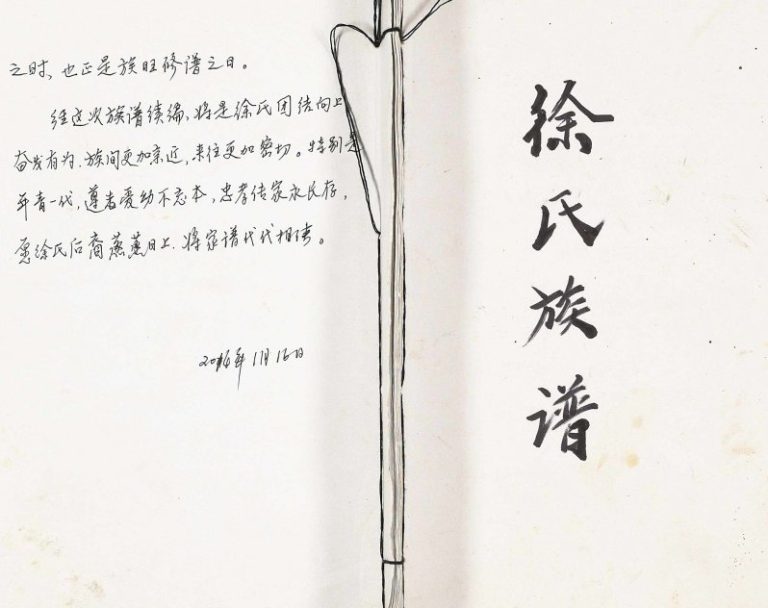 之时，也正是族旺修谱之日。
经这次族谱续编，将是徐氏团结向上
奋发有为，族间更加亲近，来往更加密切。特别是
年青一代，尊老爱幼不忘本，忠孝传家永民存，
愿徐氏后裔蒸蒸日上，将家谱代代相传。
年11月16日
徐氏族谱